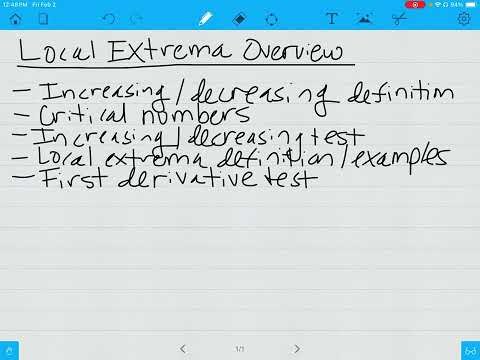 12:48 PM Fri Feb 2
94%
Local Extrema Overview
- Increasing/decreasing definition
- Critical numbers
- Increasing/decreasing test
- Local extrema definition/examples
- First derivative test
1/1